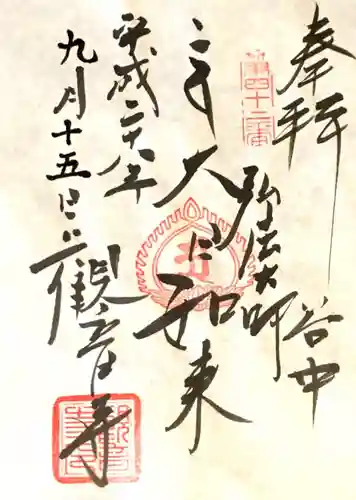 奉拝
谷中
第四十二番
弘法大師
大日如来
平成二十八年
九月十五日
観音寺